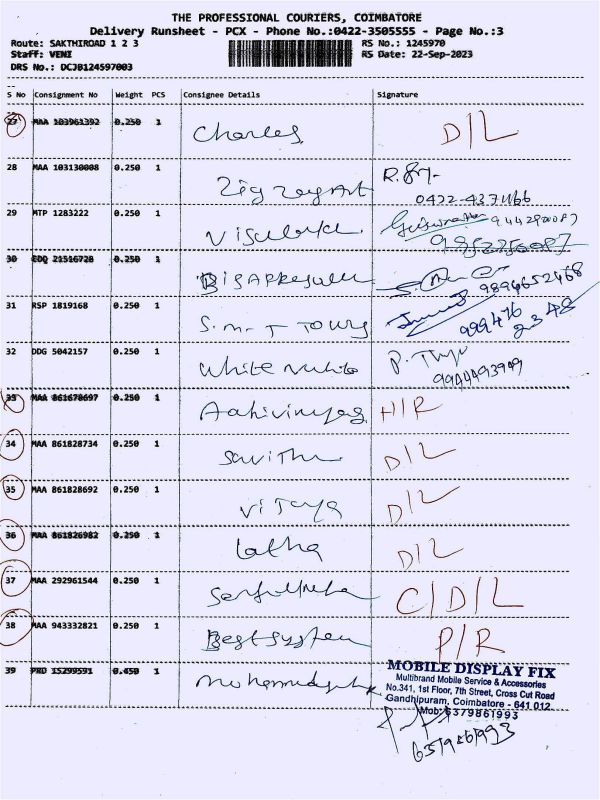 THE PROFESSIONAL COURIERS, COIMBATORE
Delivery Runsheet - PCX - Phone No.:0422-3505555 - Page No.:3
Route: SAKTHIROAD 1 2 3 RS No.: 1245970
Staff: VENI RS Date: 22-Sep-2023
DRS No.: DCJB124597003
S No Consignment No Weight PCS Consignee Details Signature
MAA 103961392 0.250 1 Charles D/L
28 MAA 103130008 0.250 1 Zig Zag Art
29 MTP 1283222 0.250 1 9442920087
9952350087
30 EDQ 21516728 0.250 1 9894652468
31 RSP 1819168 0.250 1 S.M.T TOURS
999476
2348
32 DDG 5042157 0.250 1 White White
9944493949
33 MAA 861678697 0.250 1 Aahivinyag H/R
34 MAA 861828734 0.250 1 Savitha D/L
35 MAA 861828692 0.250 1 Vijaya D/L
36 MAA 861826982 0.250 1 Latha D/L
37 MAA 292961544 0.250 1 C/D/L
38 MAA 943332821 0.250 1 Best System P/R
39 PRD 15299591 0.450 1
MOBILE DISPLAY FIX
Multibrand Mobile Service & Accessories
No.341, 1st Floor, 7th Street, Cross Cut Road
Gandhipuram, Coimbatore - 641 012.
Mob: 6379861993